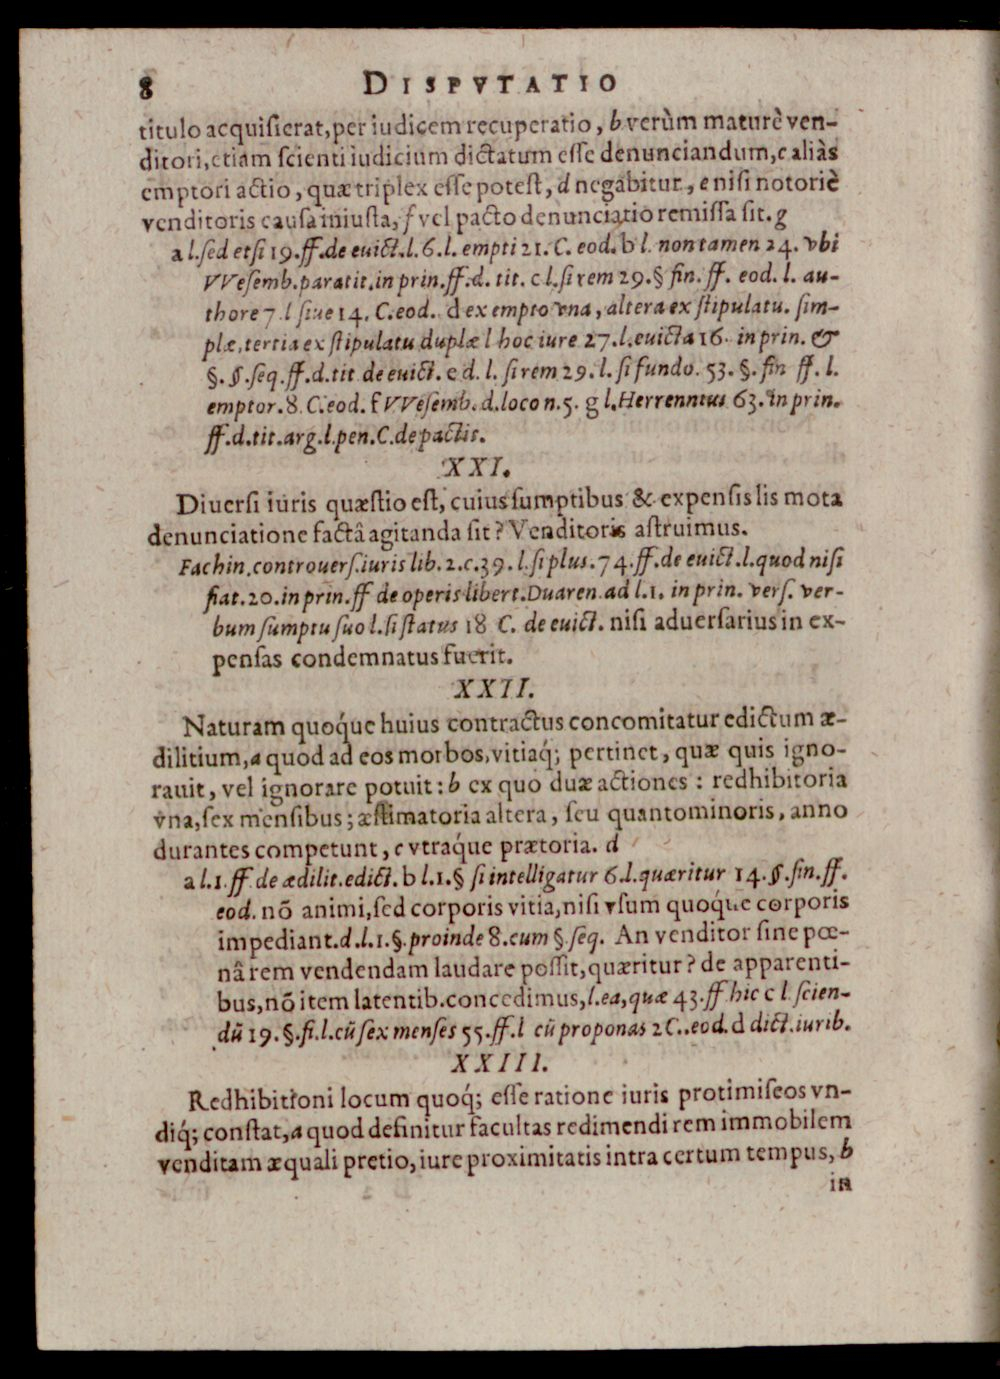 8 DISPVTATIO
titulo acquiſierat, per iudicem recuperatio, b verùm maturè ven-
ditori, etiam ſcienti iudicium dictatum eſſe denunciandum, c aliàs
emptori actio, quæ triplex eſſe poteſt, d negabitur, e niſi notoriè
venditoris cauſa iniuſta, f vel pacto denunciatio remiſſa ſit. g
a l. ſed etſi 19. ff. de euict. l. 6. l. empti 21. C. eod. b l. non tamen 24. vbi
VVeſemb. paratit. in prin. ff. d. tit. c l. ſi rem 29. § fin. ff. eod. l. au-
thore 7 l ſiue 14. C. eod. d ex empto vna, altera ex ſtipulatu. ſim-
plæ, tertia ex ſtipulatu duplæ l hoc iure 27. l. euicta 16. in prin. &
§. §. ſeq. ff. d. tit de euict. e d. l. ſi rem 29. l. ſi fundo. 53. §. fin ff. l.
emptor. 8 C. eod. f VVeſemb. d. loco n. 5. g l. Herrennius 63. in prin.
ff. d. tit. arg. l. pen. C. de pactis.
XXI.
Diuerſi iuris quæſtio eſt, cuius ſumptibus & expenſis lis mota
denunciatione factâ agitanda ſit? Venditoris aſtruimus.
Fachin. controuerſ. iuris lib. 2. c. 39. l. ſi plus. 74. ff. de euict. l. quod niſi
fiat. 20. in prin. ff de operis libert. Duaren. ad l. 1. in prin. verſ. ver-
bum ſumptu ſuo l. ſi ſtatus 18 C. de euict. niſi aduerſarius in ex-
penſas condemnatus fuerit.
XXII.
Naturam quoq́ue huius contractus concomitatur edictum æ-
dilitium, a quod ad eos morbos, vitiaq́; pertinet, quæ quis igno-
rauit, vel ignorare potuit: b ex quo duæ actiones: redhibitoria
vna, ſex menſibus; æſtimatoria altera, ſeu quantominoris, anno
durantes competunt, c vtraq́ue prætoria. d
a l. 1. ff. de ædilit. edict. b l. 1. § ſi intelligatur 6. l. quæritur 14. §. fin. ff.
eod. nõ animi, ſed corporis vitia, niſi vſum quoq́ue corporis
impediant. d. l. 1. §. proinde 8. cum §. ſeq. An venditor ſine pœ-
nâ rem vendendam laudare poſſit, quæritur? de apparenti-
bus, nõ item latentib. concedimus, l. ea, quæ 43. ff hic c l ſcien-
dũ 19. §. fi. l. cũ ſex menſes 55. ff. l cũ proponas 2 C. .eod. d dict. iurib.
XXIII.
Redhibitioni locum quoq́; eſſe ratione iuris protimiſeos vn-
diq́; conſtat, a quod definitur facultas redimendi rem immobilem
venditam æquali pretio, iure proximitatis intra certum tempus, b
in